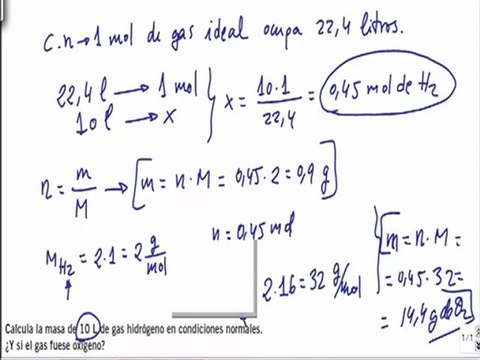 C.n → 1 mol de gas ideal ocupa 22,4 litros.
22,4 l → 1 mol
10 l → x
x = 10·1 / 22,4 = 0,45 mol de H2
n = m / M → [m = n·M = 0,45·2 = 0,9 g]
M H2 = 2·1 = 2 g/mol
n = 0,45 mol
2·16 = 32 g/mol
[m = n·M =
= 0,45·32 =
= 14,4 g de O2
Calcula la masa de 10 L de gas hidrógeno en condiciones normales.
¿Y si el gas fuese oxígeno?
1/1